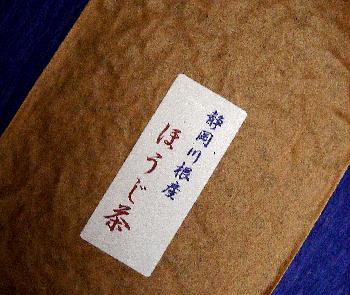 静岡川根産
ほうじ茶